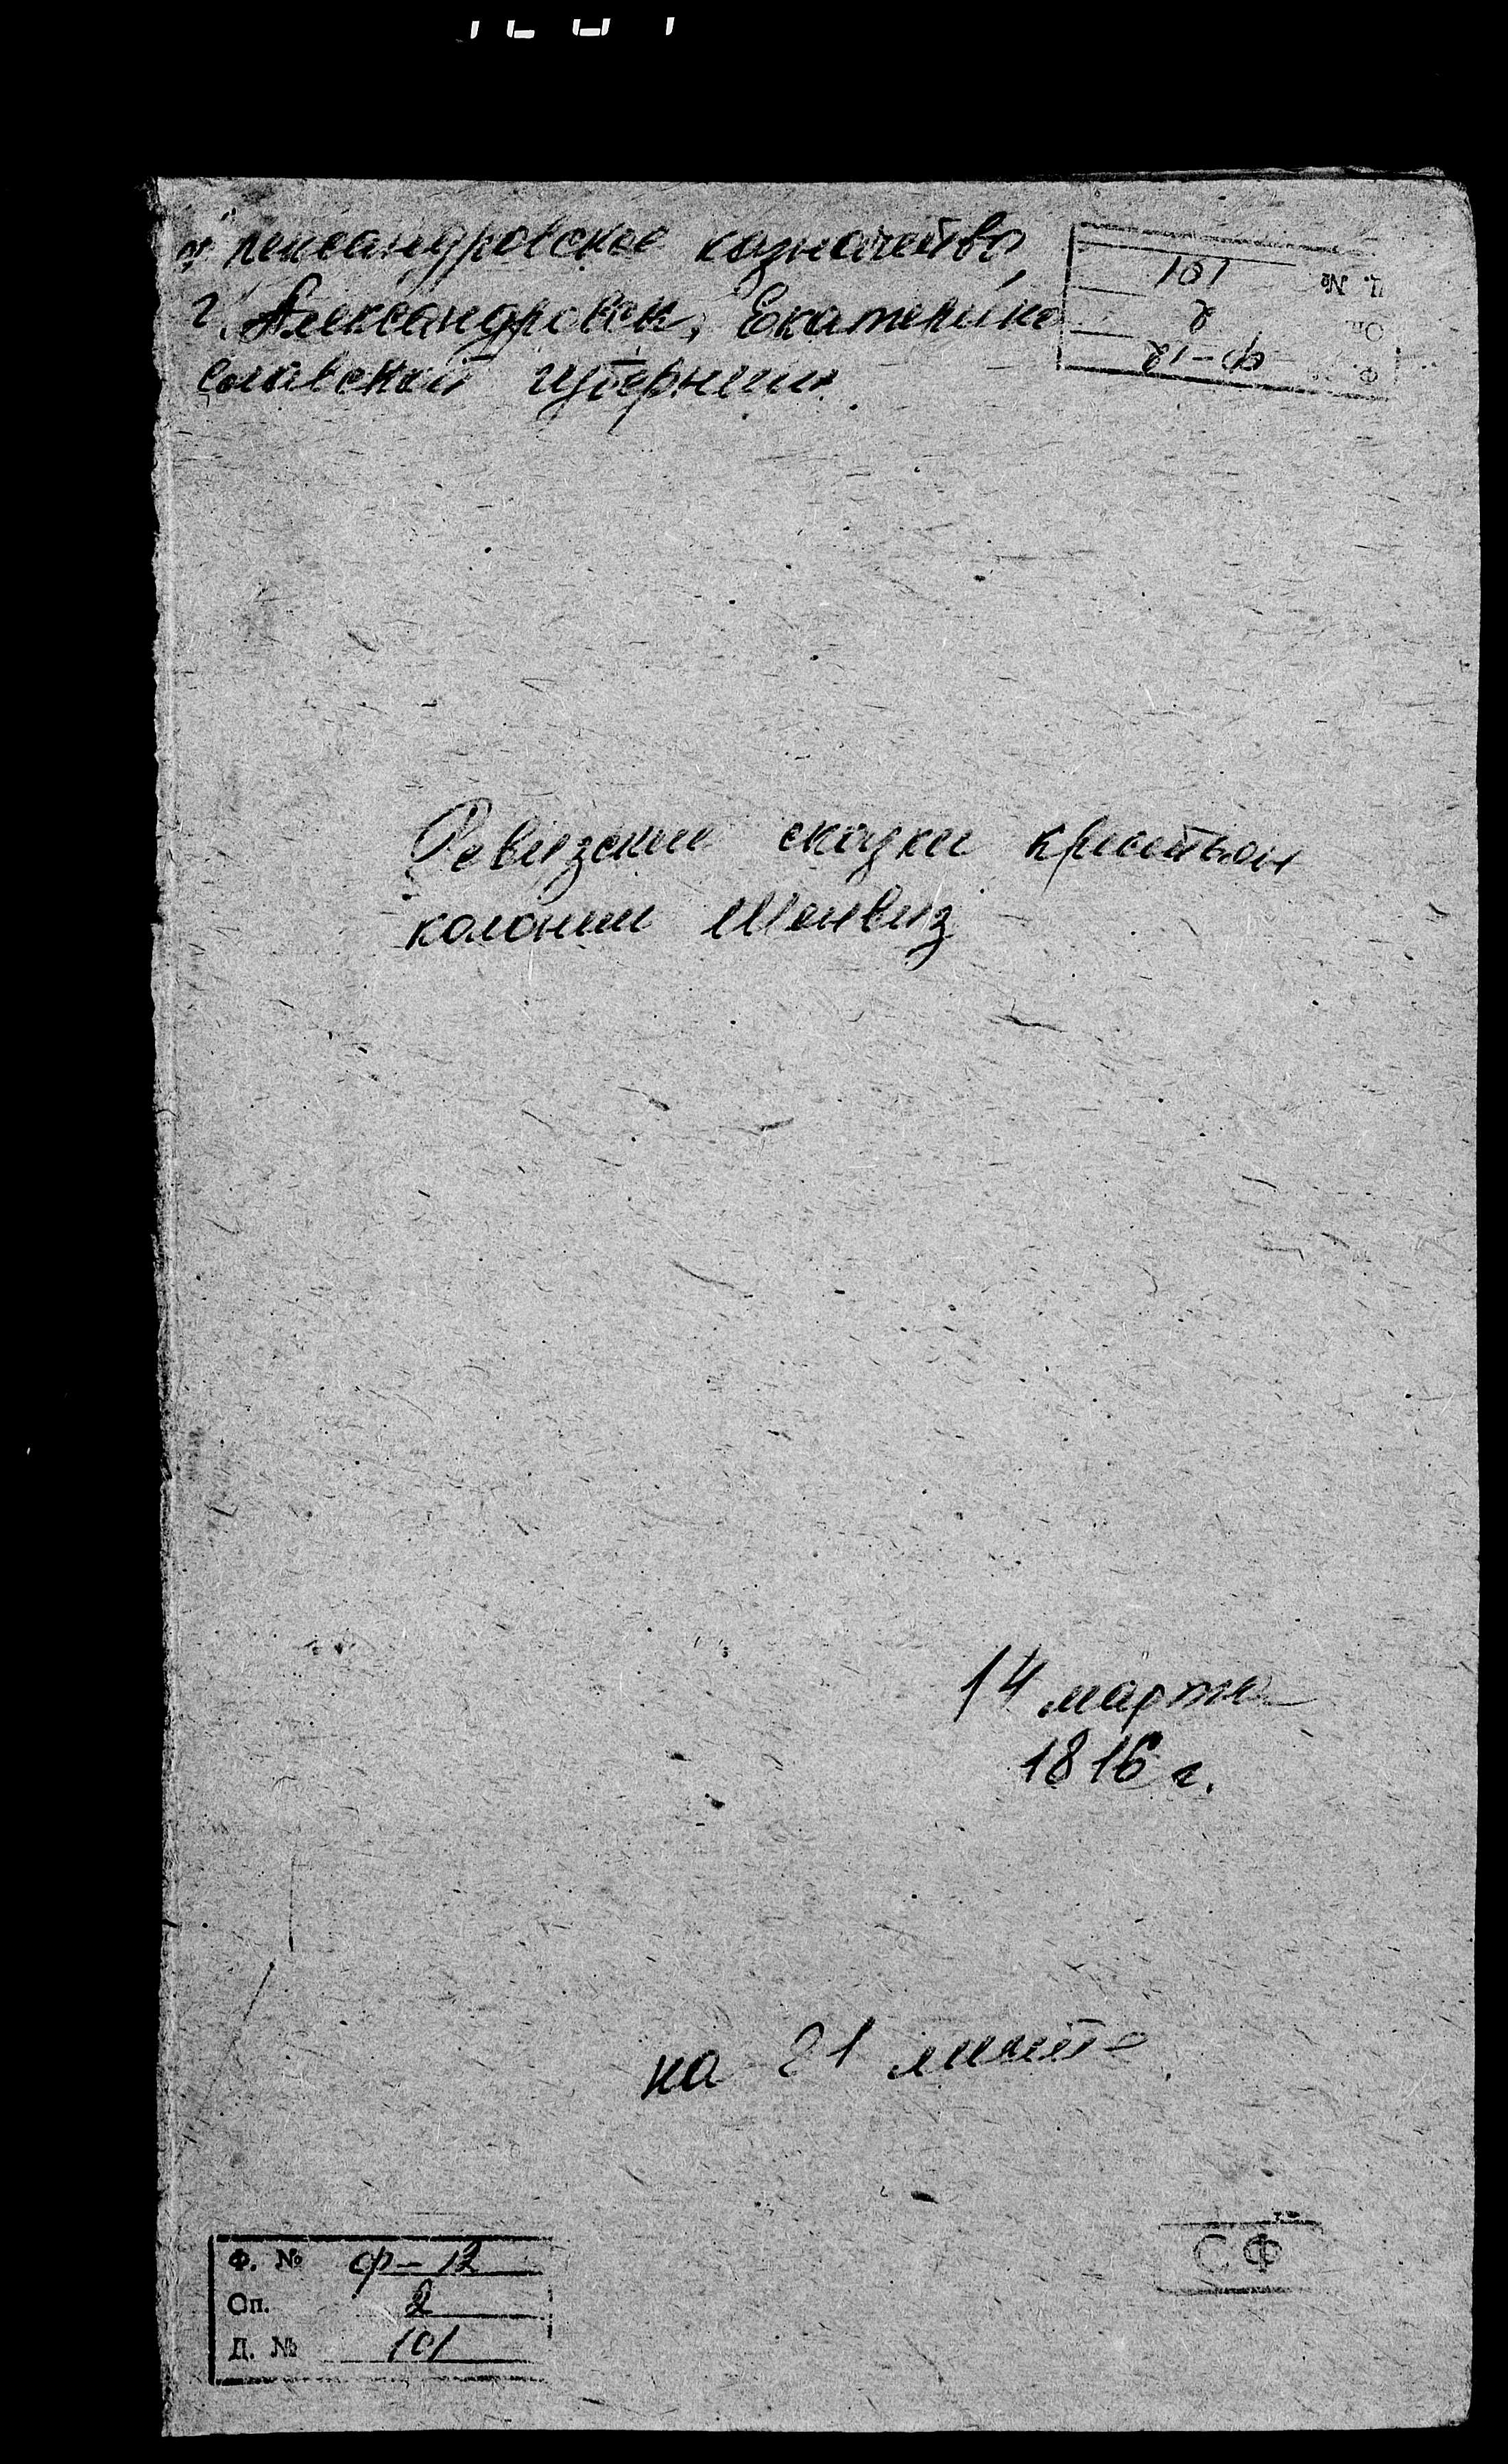 Александровское казначейство,
г. Александровск, Екатерино
славской губернии.
Д. № 101
Оп. 2
Ф. № Ф-12
Ревизские сказки крестьян
колонии Шенвиз
14 марта
1816 г.
на 21 листе
СФ
Ф. № ф-12
Оп. 2
Д. № 101